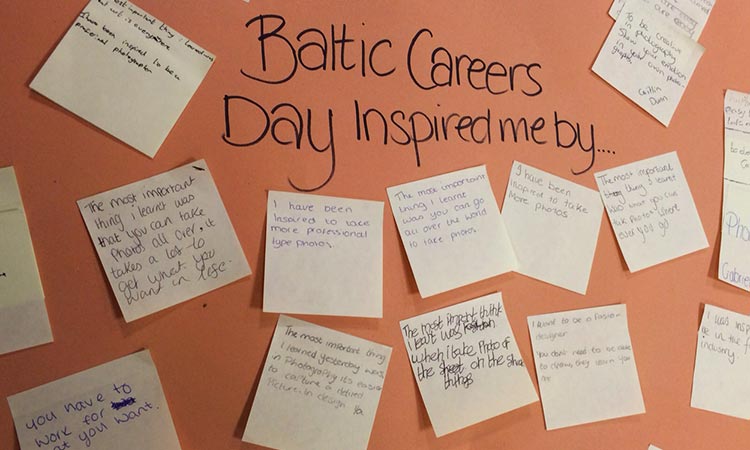 Baltic Careers
Day Inspired me by....
most important thing I learned
art is everywhere
I have been inspired to be a
proffesional photographer
To be creative
in photography
show your emotion
in your own photo-
graphs.
Caitlin
Dunn
The most important
thing i learnt was
that you can take
photos all over. it
takes a lot to
get what you
want in life.
I have been
Inspired to take
more professional
type photos.
The most important
thing I learnt
was you can go
all over the world
to take photos
I have been
inspired to take
More photos
The most important
thing I learnt
was that you can
take photos where
ever you go
you have to
work for
at you want.
The most important thing
I learned yesterday was
in Photography it's easier
to capture a detailed
Picture. In design you
The most
learnt was
when I take Photo of
the on the
things
I want to be a fashion
designer
You dont need to be able
to draw, they learn you
I was insp
in the f
industry.
Pho
Gabrie